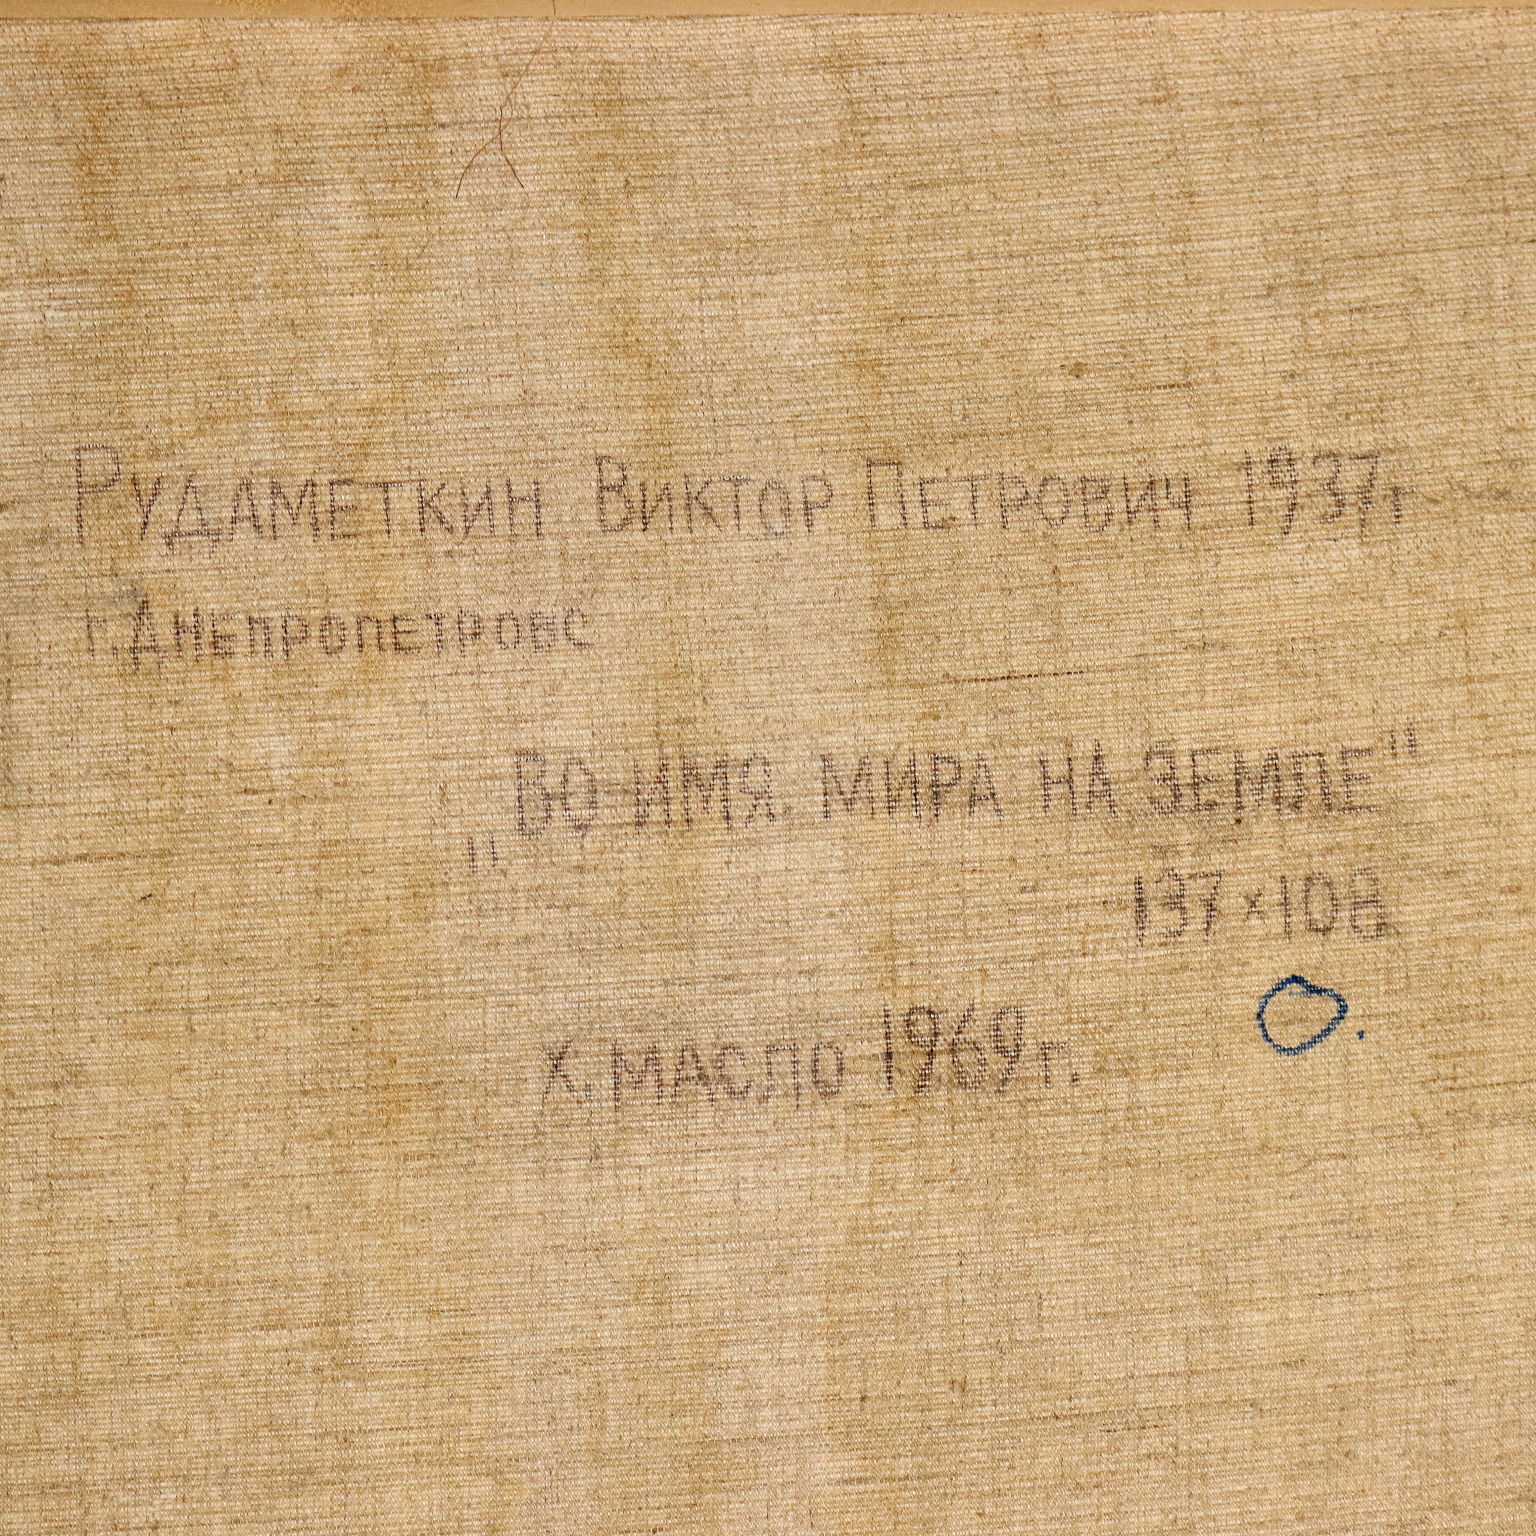 Рудаметкин Виктор Петрович 1937г
г. Днепропетровс
„Во имя мира на земле"
137×108
х. масло 1969г.